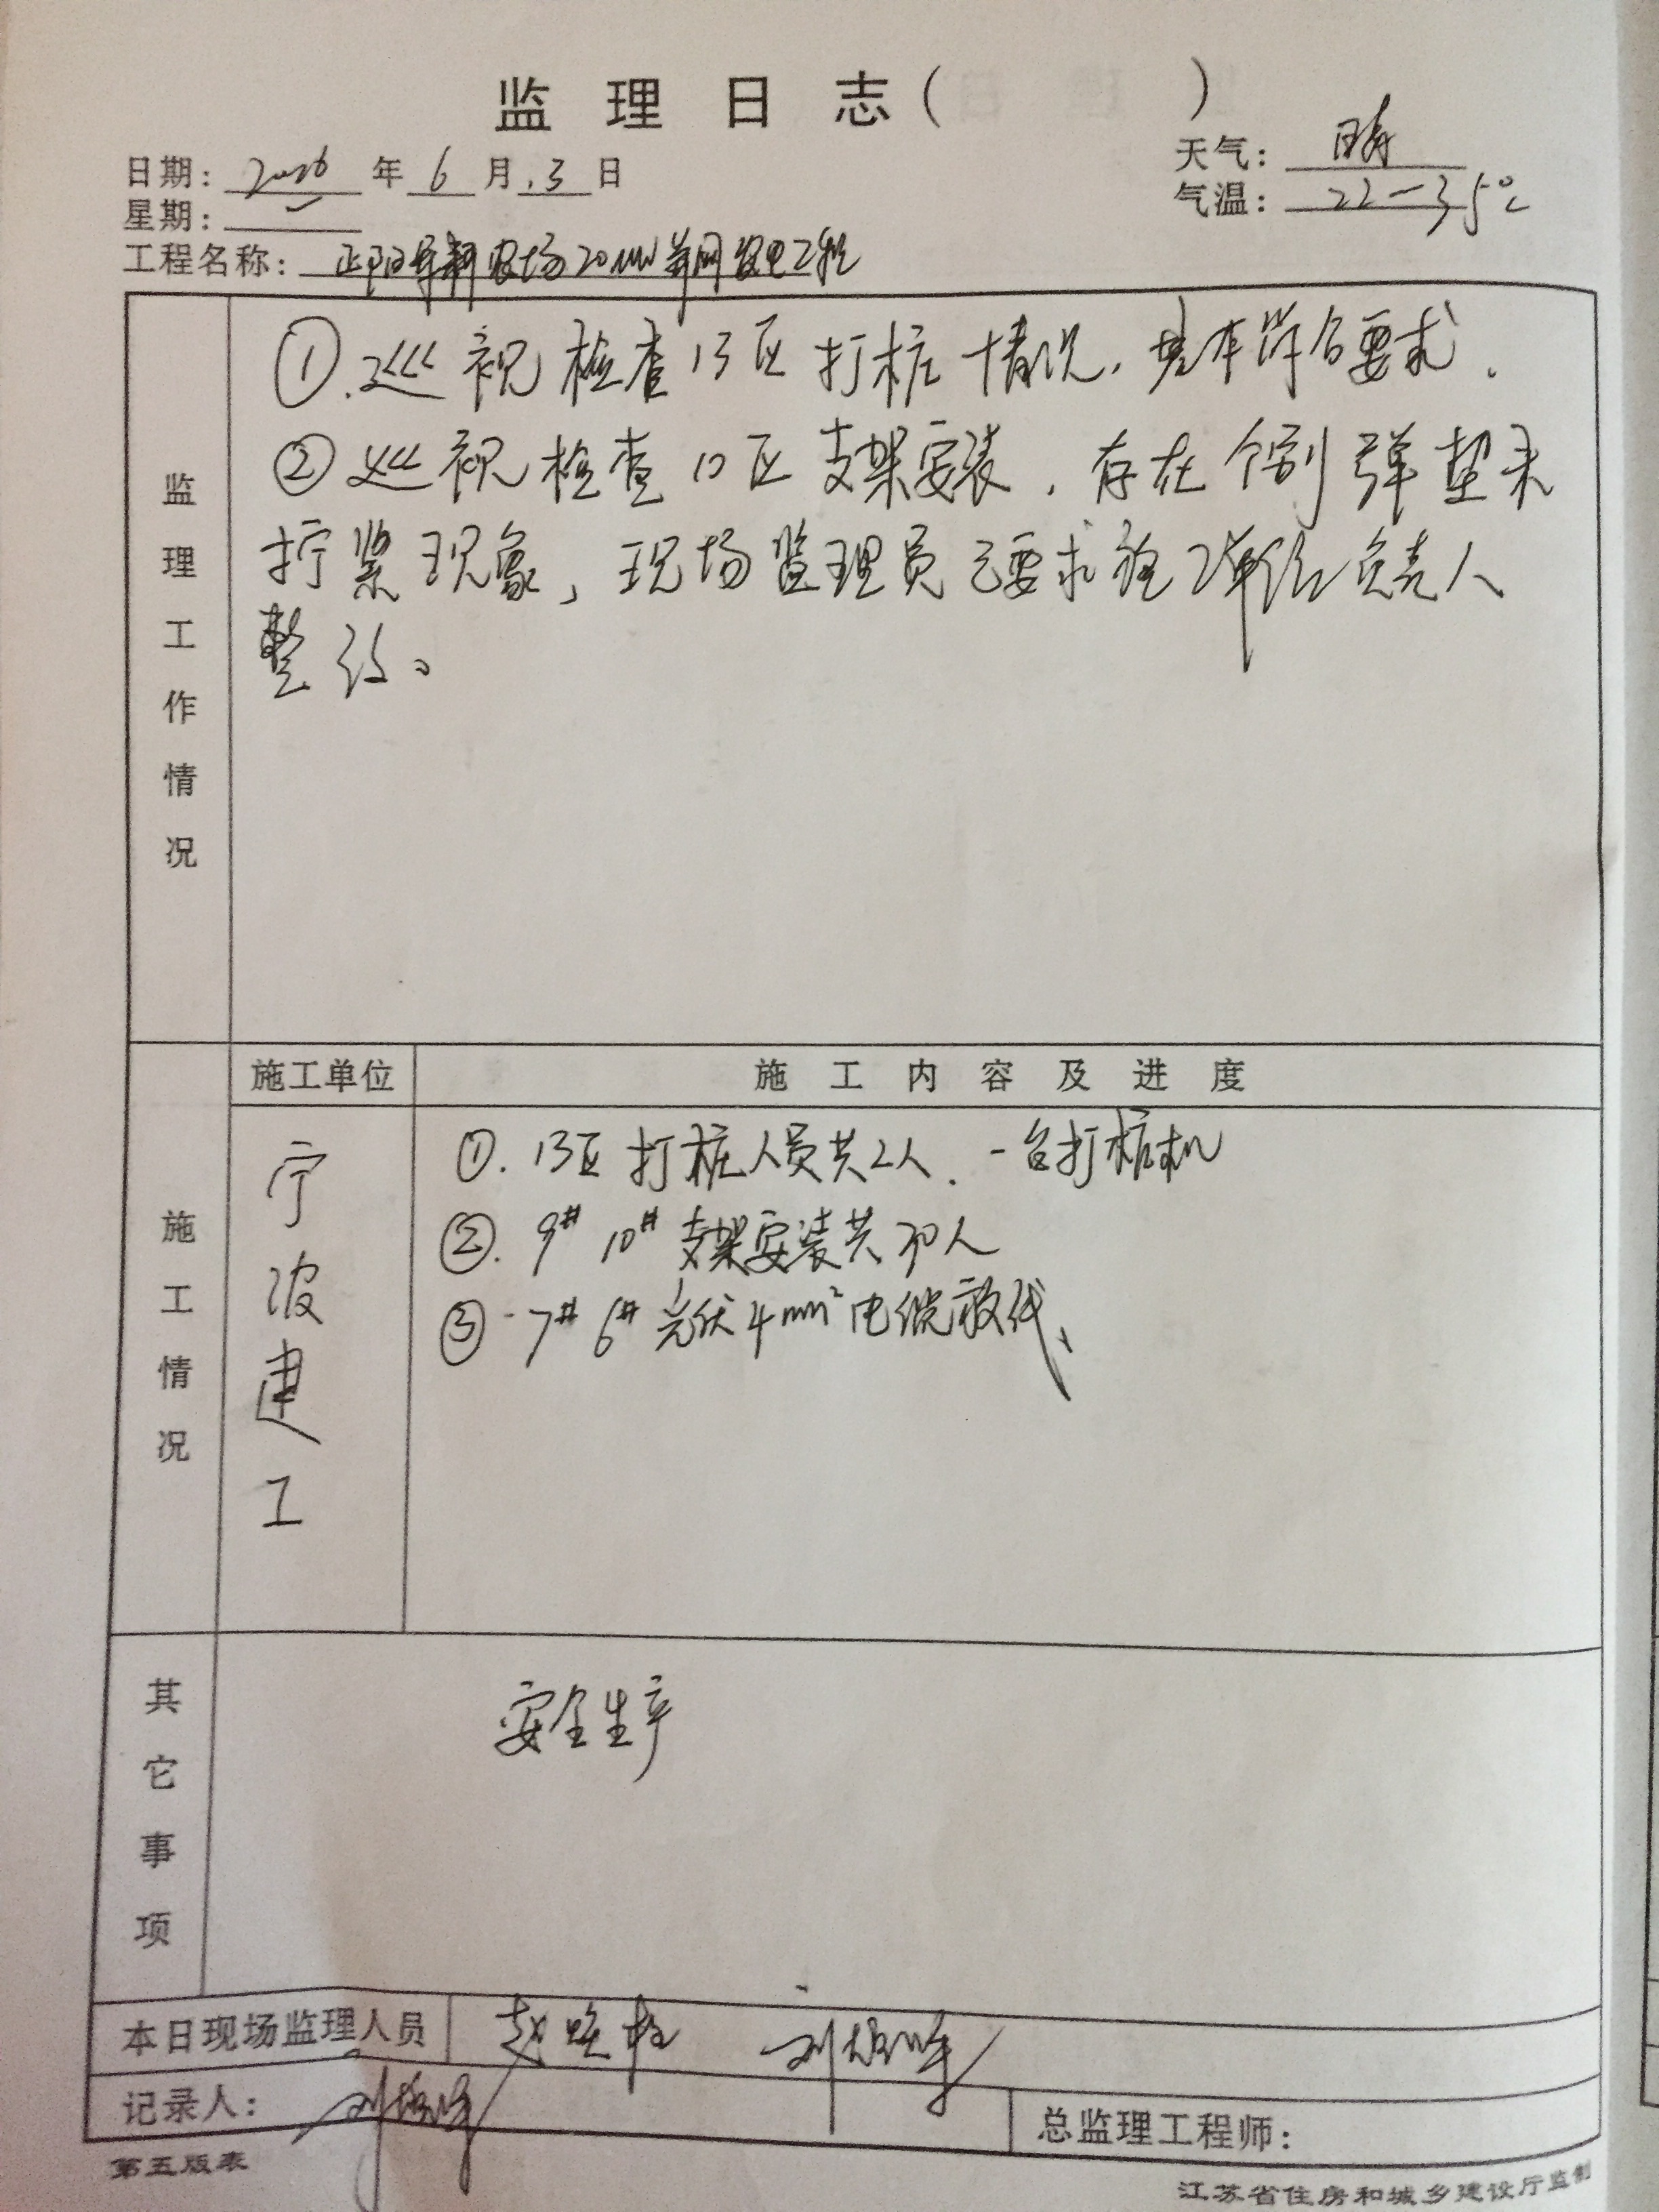 监 理 日 志 ( )
日期: 2016 年 6 月 13 日
天气: 晴
星期: 一
气温: 22-35℃
工程名称: 正阳 农场20MW并网发电工程
监理工作情况
①.巡视检查13区打桩情况,基本符合要求.
②巡视检查10区支架安装,存在个别弹垫未
拧紧现象,现场监理员已要求施工单位负责人
整改。
施工情况
施工单位
施 工 内 容 及 进 度
宁波建工
①.13区打桩人员共2人.一台打桩机
②.9# 10# 支架安装共30人
③ 7# 6# 光伏4mm²电缆放线、
其它事项
安全生产
本日现场监理人员 赵 刘
记录人: 刘
总监理工程师:
第五版表
江苏省住房和城乡建设厅监制